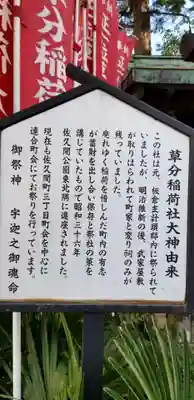 草分稲荷社大神由来
この社は元、板倉主計頭邸内に祭られて
いましたが、明治維新の後、武家屋敷
が取りはらわれて町家と変り祠のみが
残っていました。
廃れゆく稲荷を惜しんだ町内の有志
が蓄財を出し合い保存と祭社の策を
講じていたもので昭和三十六年
佐久間公園東北隅に遷座されました。
現在も佐久間町三丁目町会を中心に
連合町会にてお祭りを行っています。
御祭神 宇迦之御魂命
草分稲荷